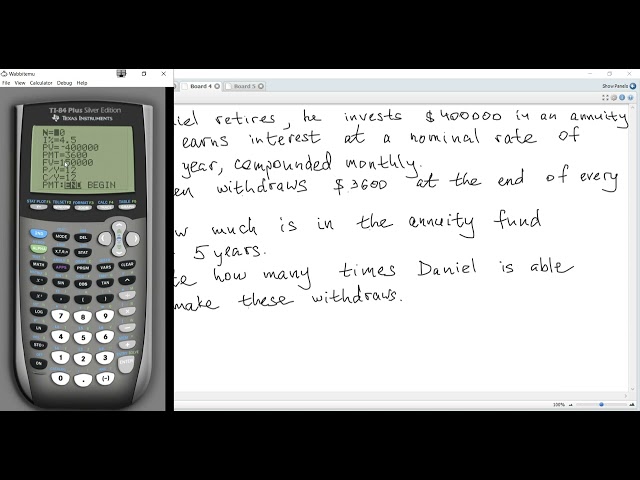 Wabbitemu
File View Calculator Debug Help
TI-84 Plus Silver Edition
TEXAS INSTRUMENTS
I%=4.5
PV=-400000
PMT=3600
P/Y=12
C/Y=12
PMT:END BEGIN
STAT PLOT F1 TBLSET F2 FORMAT F3 CALC F4 TABLE F5
2ND MODE DEL
ALPHA X,T,θ,n STAT
MATH APPS PRGM VARS CLEAR
SIN COS TAN
LOG 7 8 9
LN 4 5 6
STO 1 2 3
ON 0 . (-)
Board 4 Board 5
Show Panels
iel retires, he invests $400000 in an annuity
earns interest at a nominal rate of
year, compounded monthly.
en withdraws $3600 at the end of every
w much is in the annuity fund
5 years.
te how many times Daniel is able
make these withdraws.
100%